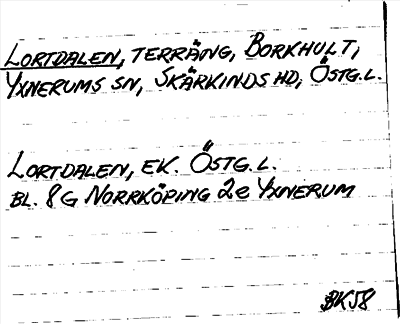 LORTDALEN, TERRÄNG, BORKHULT,
YXNERUMS SN, SKÄRKINDS HD, ÖSTG.L.
LORTDALEN, EK. ÖSTG.L.
BL. 8G NORRKÖPING 2e YXNERUM
BKJ8